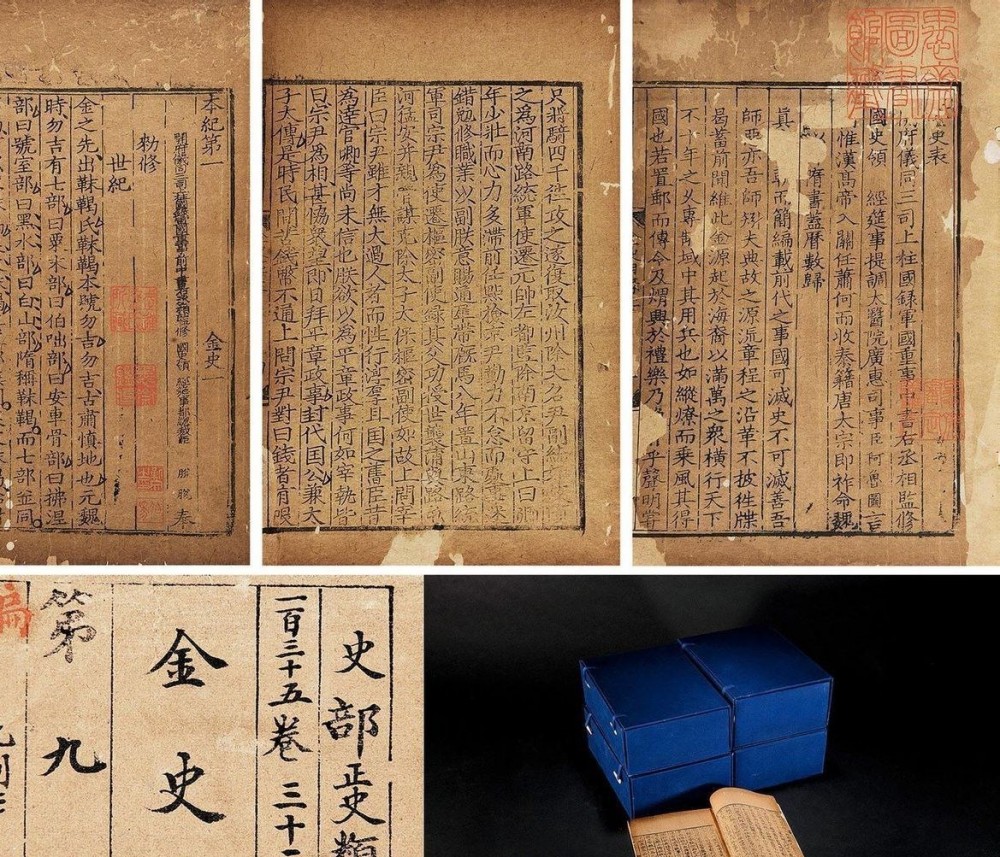 本紀第一　金史一
勑修
世紀
金之先出靺鞨氏靺鞨本號勿吉勿吉古肅慎地也元魏
時勿吉有七部曰粟末部曰伯咄部曰安車骨部曰拂涅
部曰號室部曰黑水部曰白山部隋稱靺鞨而七部並同
只將騎四千往攻之遂復取汝州除大名尹副統
之爲河南路統軍使遷元帥左都監除南京留守上曰
年少壯而心力多滯前任點檢京尹勤力不怠而處事迷
錯勉修職業以副朕意賜通犀帶廐馬八年置山東路統
軍司宗尹爲使遷樞密副使錄其父功授世襲蒲與路
河猛安并親管謀克除太子太保樞密副使如故上問宰
臣曰宗尹雖才無大過人者而性行淳厚且国之舊臣昔
爲達官卿等尚未信也朕欲以爲平章政事何如宰執皆
曰宗尹爲相甚協衆望即日拜平章政事封代国公兼太
子太傅是時民間苦錢幣不通上問宗尹對曰錢者有限
史表
府儀同三司上柱國録軍國重事中書右丞相監修
國史領　經筵事提調太醫院廣惠司事臣阿魯圖言
惟漢高帝入關任蕭何而收秦籍唐太宗即祚命魏
以　隋書蓋曆數歸
眞　簡編載前代之事國可滅史不可滅善吾
師惡亦吾師矧夫典故之源流章程之沿革不披往牒
曷蓄前聞維此金源起於海裔以滿萬之衆橫行天下
不　年之久專制域中其用兵也如縱燎而乘風其得
國也若置郵而傳令及煟興於禮樂乃　乎聲明嘗
史部正史類
一百三十五卷 三十
金史
第九